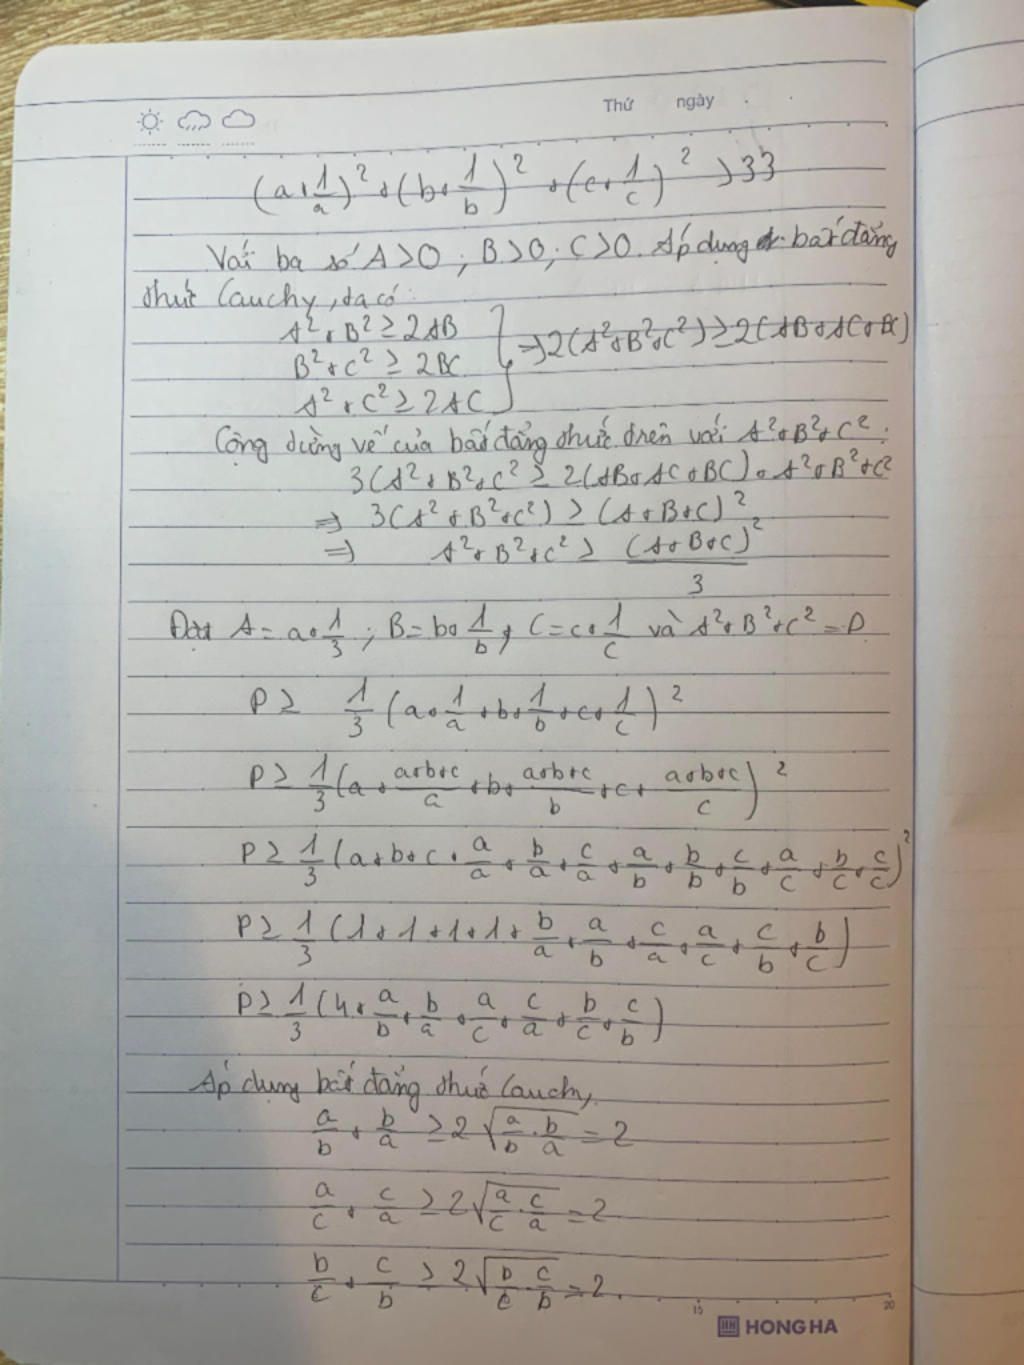 Thứ ngày
(a+1/a)² + (b+1/b)² + (c+1/c)² > 33
Với ba số A>0; B>0; C>0. Áp dụng bất đẳng
thức Cauchy, ta có:
A²+B² ≥ 2AB
B²+C² ≥ 2BC
A²+C² ≥ 2AC
} ⇒ 2(A²+B²+C²) ≥ 2(AB+AC+BC)
Cộng từng vế của bất đẳng thức trên với A²+B²+C²:
3(A²+B²+C² ≥ 2(AB+AC+BC)+A²+B²+C²
⇒ 3(A²+B²+C²) ≥ (A+B+C)²
⇒ A²+B²+C² ≥ (A+B+C)²/3
Đặt A=a+1/3; B=b+1/b; C=c+1/c và A²+B²+C²=P
P ≥ 1/3 (a+1/a+b+1/b+c+1/c)²
P ≥ 1/3 (a+(a+b+c)/a+b+(a+b+c)/b+c+(a+b+c)/c)²
P ≥ 1/3 (a+b+c+a/a+b/a+c/a+a/b+b/b+c/b+a/c+b/c+c/c)²
P ≥ 1/3 (1+1+1+1+b/a+a/b+c/a+a/c+c/b+b/c)
P ≥ 1/3 (4+a/b+b/a+a/c+c/a+b/c+c/b)
Áp dụng bất đẳng thức Cauchy,
a/b + b/a ≥ 2√(a/b . b/a) = 2
a/c + c/a ≥ 2√(a/c . c/a) = 2
b/c + c/b ≥ 2√(b/c . c/b) = 2
15 20
HH HONG HA